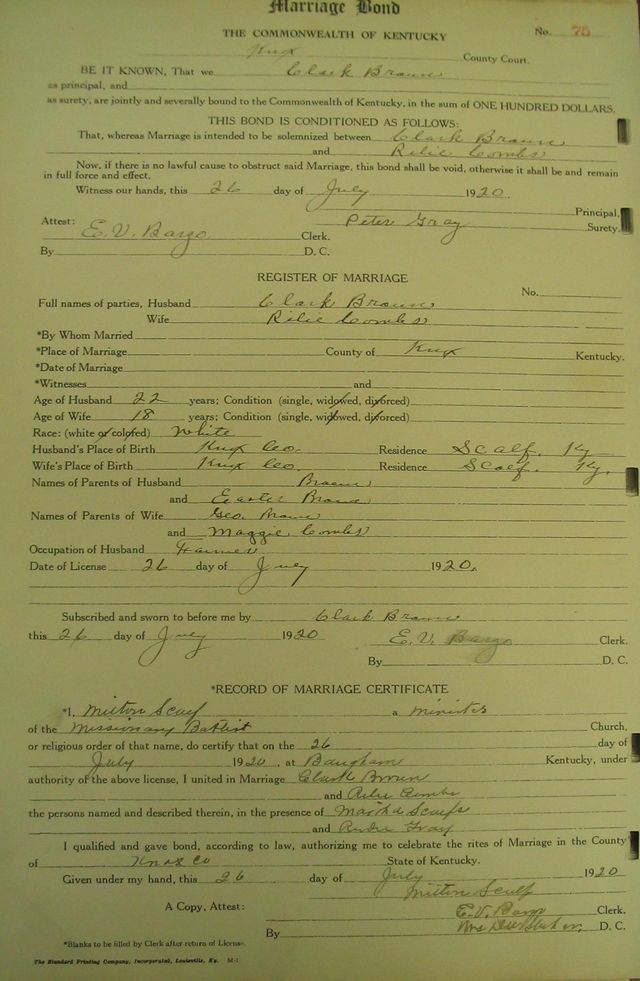 Marriage Bond
THE COMMONWEALTH OF KENTUCKY No. 75
Knox County Court.
BE IT KNOWN, That we Clark Brown
as principal, and
as surety, are jointly and severally bound to the Commonwealth of Kentucky, in the sum of ONE HUNDRED DOLLARS.
THIS BOND IS CONDITIONED AS FOLLOWS:
That, whereas Marriage is intended to be solemnized between Clark Brown
and Rilie Combs
Now, if there is no lawful cause to obstruct said Marriage, this bond shall be void, otherwise it shall be and remain
in full force and effect.
Witness our hands, this 26 day of July 1920.
Principal.
Attest: Peter Gray Surety.
E. V. Bargo Clerk.
By D. C.
REGISTER OF MARRIAGE
No.
Full names of parties, Husband Clark Brown
Wife Rilie Combs
*By Whom Married
*Place of Marriage County of Knox Kentucky.
*Date of Marriage
*Witnesses and
Age of Husband 22 years; Condition (single, widowed, divorced)
Age of Wife 18 years; Condition (single, widowed, divorced)
Race: (white or colored) White
Husband's Place of Birth Knox Co. Residence Scalf. Ky
Wife's Place of Birth Knox Co. Residence Scalf. Ky.
Names of Parents of Husband Brown
and Easter Brown
Names of Parents of Wife Geo. Brown
and Maggie Combs
Occupation of Husband Farmer
Date of License 26 day of July 1920.
Subscribed and sworn to before me by Clark Brown
this 26 day of July 1920 E. V. Bargo Clerk.
By D. C.
*RECORD OF MARRIAGE CERTIFICATE
*I, Milton Scalf a Minister
of the Missionary Baptist Church,
or religious order of that name, do certify that on the 26 day of
July 1920, at Baughman Kentucky, under
authority of the above license, I united in Marriage Clark Brown
and Rilie Combs
the persons named and described therein, in the presence of Martha Scalf
and Gray
I qualified and gave bond, according to law, authorizing me to celebrate the rites of Marriage in the County
of Knox Co State of Kentucky.
Given under my hand, this 26 day of July 1920
Milton Scalf
A Copy, Attest: E. V. Bargo Clerk.
By Mrs D. C.
*Blanks to be filled by Clerk after return of License.
The Standard Printing Company, Incorporated, Louisville, Ky. M-1